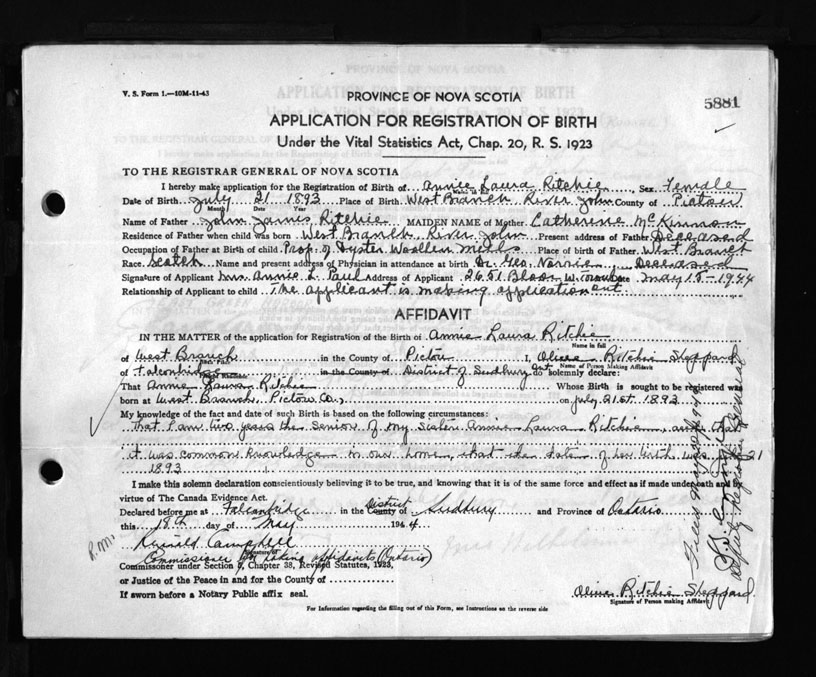 V. S. Form 1.—10M-11-43
5881
PROVINCE OF NOVA SCOTIA
APPLICATION FOR REGISTRATION OF BIRTH
Under the Vital Statistics Act, Chap. 20, R. S. 1923
TO THE REGISTRAR GENERAL OF NOVA SCOTIA
I hereby make application for the Registration of Birth of Annie Laura Ritchie Sex Female
Name in full
Date of Birth July 21 1893 Place of Birth West Branch River John County of Pictou
Month Date Year
Name of Father John James Ritchie MAIDEN NAME of Mother Catherine McKinnon
Residence of Father when child was born West Branch River John Present address of Father Deceased
Occupation of Father at Birth of child Prop. of Oyster Woollen Mills Place of Birth of Father West Branch
Race Scotch Name and present address of Physician in attendance at birth Dr. Geo. Deceased
Signature of Applicant Mrs. Annie L. Paul Address of Applicant 2651 Bloor W. Toronto Date May 15-1944
Relationship of Applicant to child The applicant is making application
AFFIDAVIT
IN THE MATTER of the application for Registration of the Birth of Annie Laura Ritchie
Name in full
of West Branch in the County of Pictou I, Ritchie Sheppard
Birth Place Name of Person Making Affidavit
of Falconbridge in the County of District of Sudbury Ont do solemnly declare:
That Annie Laura Ritchie Whose Birth is sought to be registered was
born at West Branch, Pictou Co., on July 21st 1893
My knowledge of the fact and date of such Birth is based on the following circumstances:
That I am two years the senior of my sister Annie Laura Ritchie, and that
it was common knowledge in our home, that the date of her birth was July 21
1893
I make this solemn declaration conscientiously believing it to be true, and knowing that it is of the same force and effect as if made under oath and by
virtue of The Canada Evidence Act.
Declared before me at Falconbridge in the County of District Sudbury and Province of Ontario
this 18th day of May 1944
Campbell
Signature of
Commissioner for taking affidavits (Ontario)
Commissioner under Section 9, Chapter 38, Revised Statutes, 1923,
or Justice of the Peace in and for the County of
If sworn before a Notary Public affix seal.
Ritchie Sheppard
Signature of Person making Affidavit
For Information regarding the filling out of this Form, see Instructions on the reverse side
Deputy Registrar General